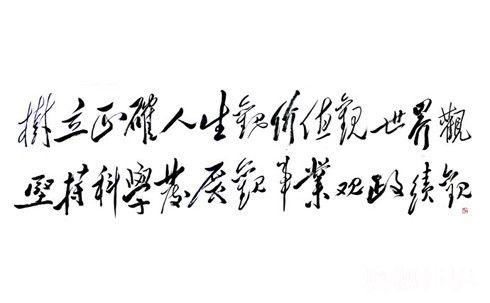 樹立正確人生觀价值观世界觀
堅持科學發展觀事業观政績觀